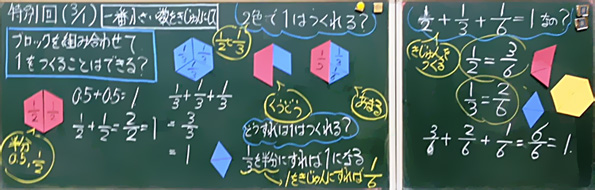 特別1回(3/1)
一番小さい数をきじゅんにして
ブロックを組み合わせて
1をつくることはできる?
1/2 1/2
半分
0.5, 1/2
0.5+0.5=1
1/2+1/2=2/2=1
1/3 1/3
1/3
1/3+1/3+1/3
=3/3
=1
2色で1はつくれる?
1/2=1/3
くうどう
おうぎる
どうすれば1はつくれる?
1/3を半分にすれば1になる
1をきじゅんにすれば1/6
1/2+1/3+1/6=1なの?
きじゅんを
つくる
1/2=3/6
1/3=2/6
3/6+2/6+1/6=6/6=1